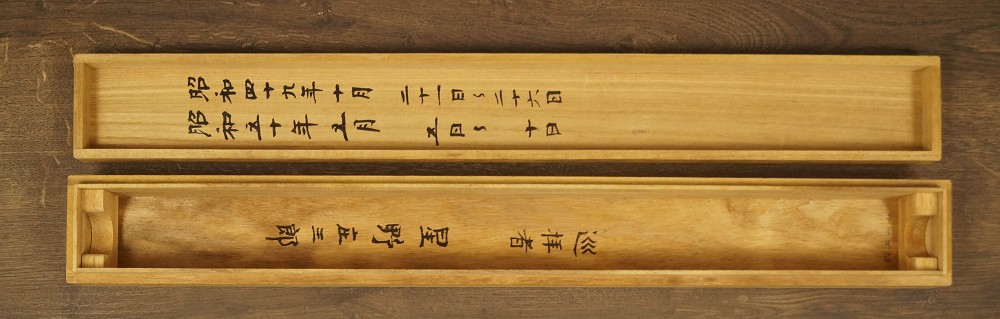 昭和四十九年十月 二十一日~二十六日
昭和五十年五月 五日~十日
巡拝者 星野庄三郎